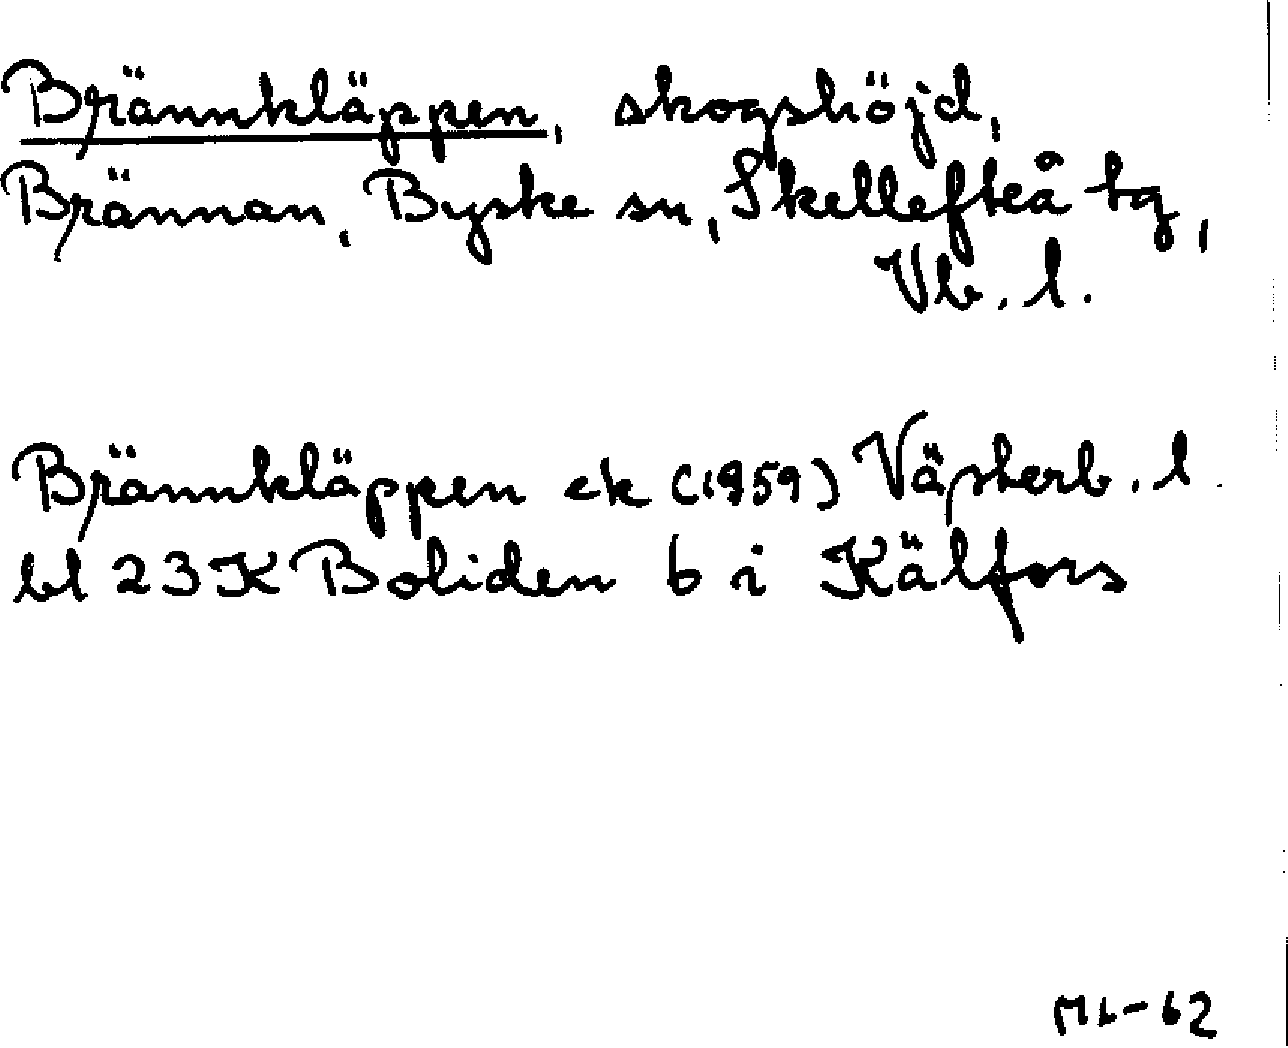 Brännkläppen, skogshöjd,
Brännan, Byske sn, Skellefteå tg,
Vb. l.
Brännkläppen ek (1959) Västerb. l.
bl 23K Boliden b i Kälfors
ML-62